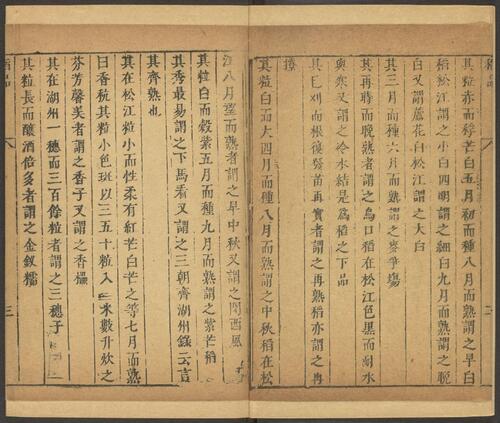 稻品
二
其粒赤而稃芒白五月初而種八月而熟謂之早白
稻松江謂之小白四明謂之細白九月而熟謂之晚
白又謂蘆花白松江謂之大白
其三月而種六月而熟謂之麥爭塲
其再蒔而晚熟者謂之烏口稻在松江色黑而耐水
與寒又謂之冷水結是爲稻之下品
其已刈而根復發苗再實者謂之再熟稻亦謂之再
撩
其粒白而大四月而種八月而熟謂之中秋稻在松
江八月望而熟者謂之早中秋又謂之閃西風
其粒白而穀紫五月而種九月而熟謂之紫芒稻
其秀最易謂之下馬看又謂之三朝齊湖州錄云言
其齊熟也
其在松江粒小而性柔有紅芒白芒之等七月而熟
曰香秔其粒小色斑以三五十粒入米數升炊之
芬芳馨美者謂之香子又謂之香
其在湖州一穗而三百餘粒者謂之三穗子
其粒長而釀酒倍多者謂之金釵糯
稻品
三